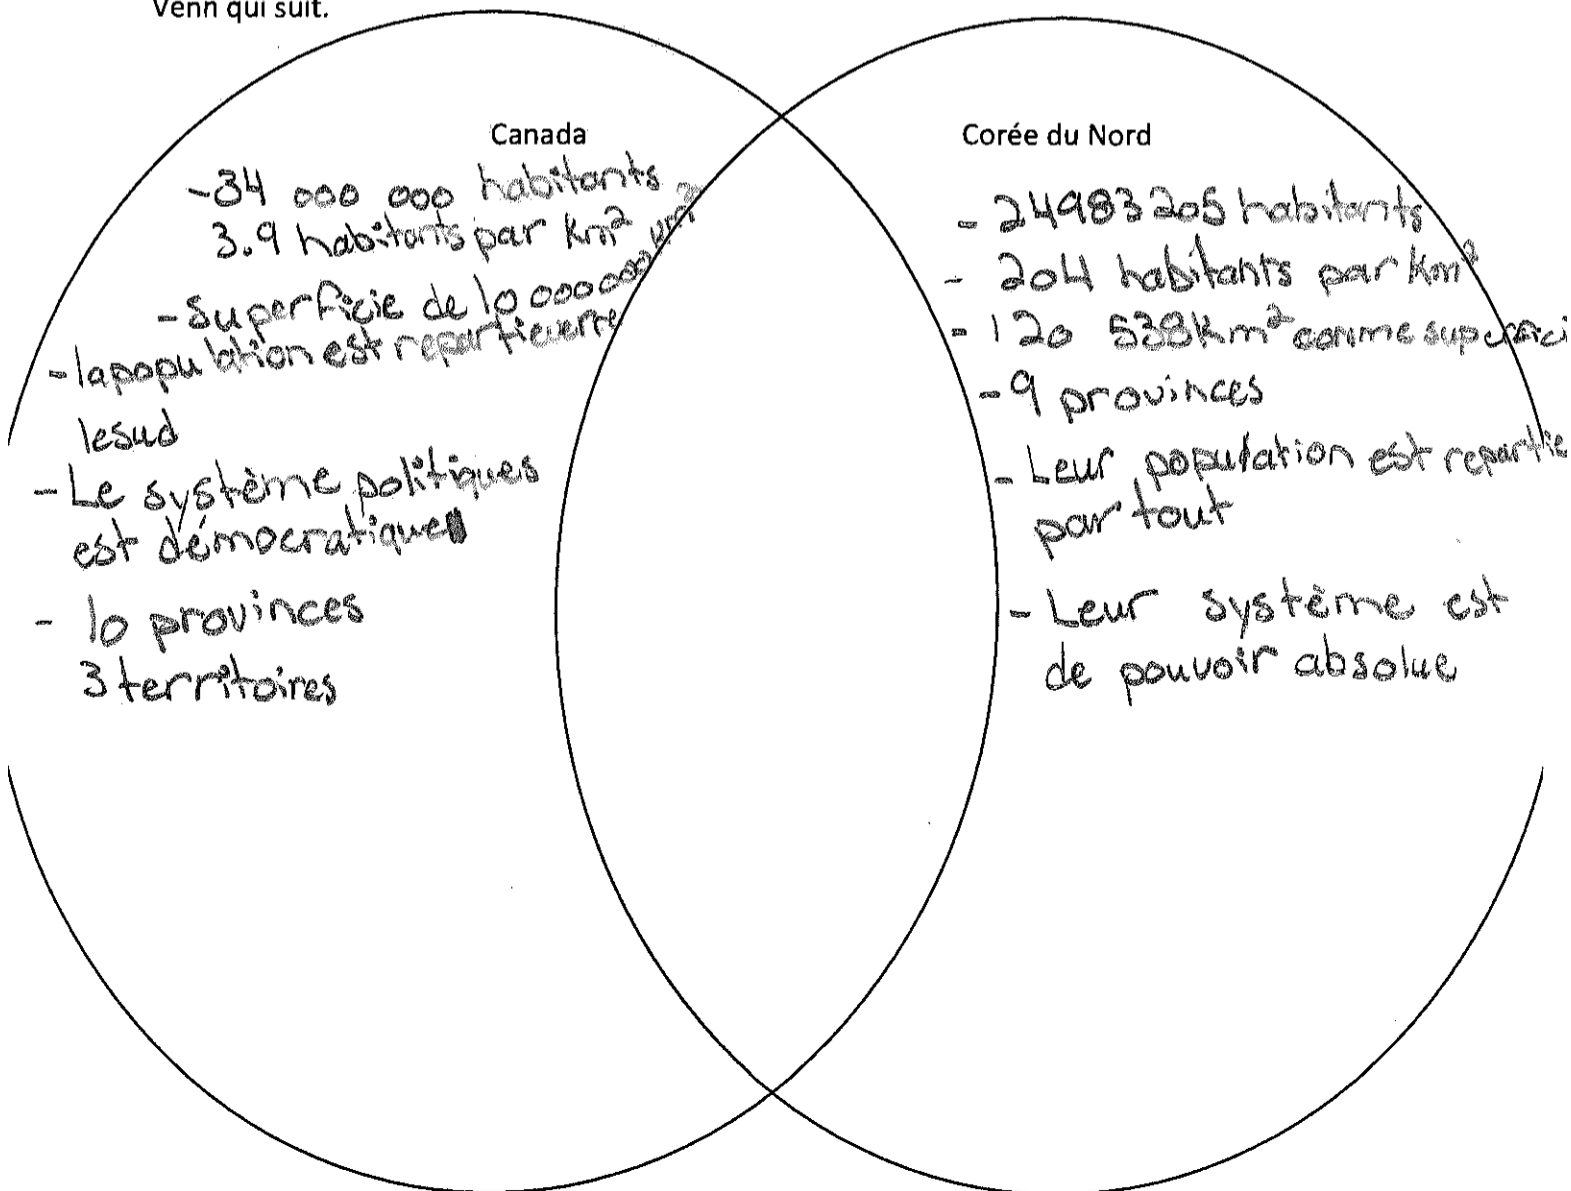 Venn qui suit.
Canada
-34 000 000 habitants
3.9 habitants par Km²
-Superficie de 10 000 000 km²
-la population est repartie verre
le sud
-Le système politiques
est démocratique
- 10 provinces
3 territoires
Corée du Nord
- 24983205 habitants
- 204 habitants par Km²
- 120 538 Km² comme superfici
-9 provinces
- Leur population est repartie
par tout
- Leur système est
de pouvoir absolue